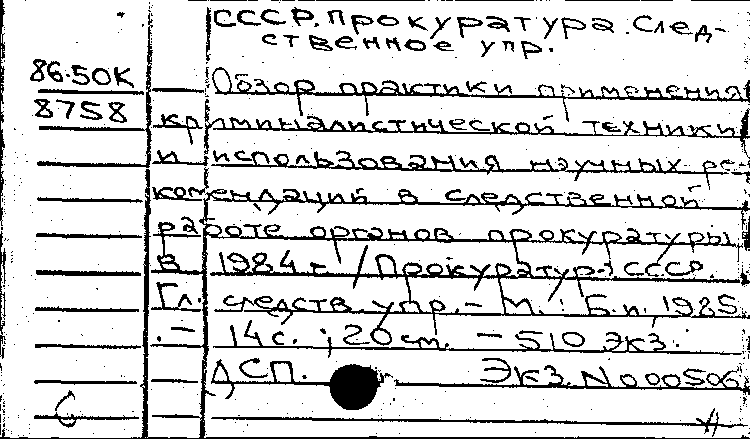 СССР. Прокуратура. След-
ственное упр.
86.50К
8758
Обзор практики применения
криминалистической техники
и использования научных ре-
комендаций в следственной
работе органов прокуратуры
в 1984 г. / Прокуратура СССР.
Гл. следств. упр. – М.: Б.и., 1985.
. – 14 с. ; 20 см. – 510 экз.
ДСП. Экз. N 000506